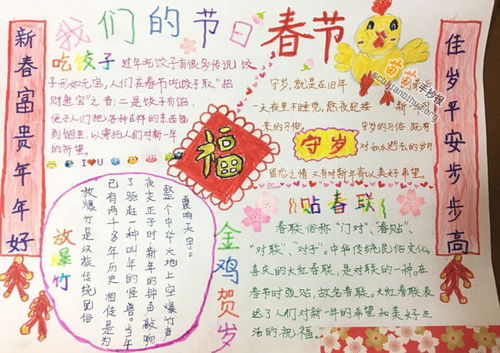 我们的节日 春节
新春富贵年年好
佳岁平安步步高
吃饺子
过年吃饺子有很多传说 饺
子形如元宝，人们在春节吃饺子取"招
财进宝"之音；二是饺子有馅
便于人们把各种吉祥的东西包
到馅里，以寄托人们对新一年
的祈望。
I ♥ U
守岁，就是在旧年
一天夜里不睡觉，熬夜迎接 新
来的习俗
守岁的习俗，既有
对如水逝去的岁月
留恋之情 又有对新年寄以美好希望。
守岁
福
苗苗手抄报
放爆竹
放爆竹是汉族传统民俗
已有两千多年历史 相传是为
了驱赶一种叫年的怪兽。当年
夜交正子时 新年的钟声敲响
整个中华大地上空 爆竹声
震响天宇。
金鸡贺岁
贴春联
春联俗称"门对"、"春贴"、
"对联"、"对子"。中华传统民俗文化
喜庆的大红春联，是对联的一种。在
春节时张贴，故名春联。大红春联表
达了人们对新一年的希望和美好生
活的祝福。